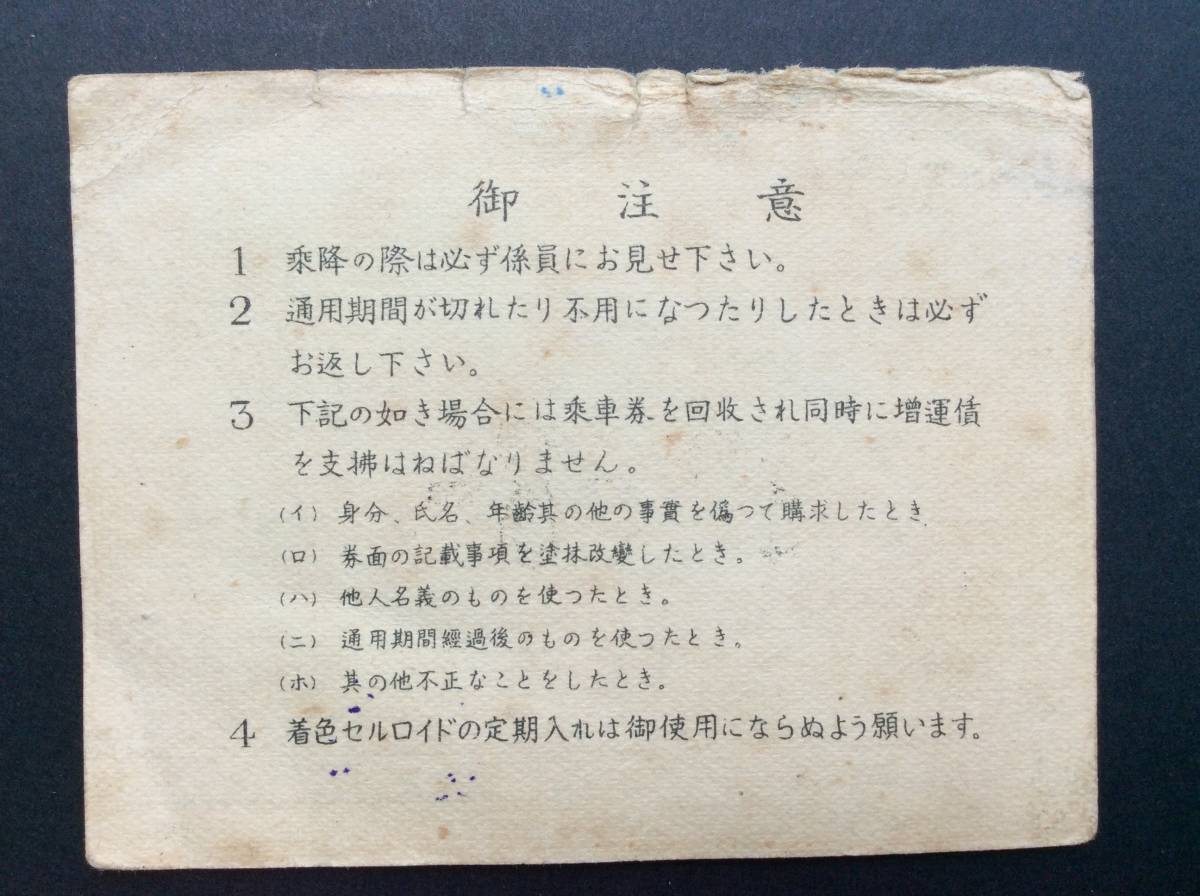 御注意
1 乗降の際は必ず係員にお見せ下さい。
2 通用期間が切れたり不用になつたりしたときは必ず
お返し下さい。
3 下記の如き場合には乗車券を回収され同時に増運賃
を支拂はねばなりません。
(イ) 身分、氏名、年齢其の他の事實を偽つて購求したとき
(ロ) 券面の記載事項を塗抹改變したとき。
(ハ) 他人名義のものを使つたとき。
(ニ) 通用期間經過後のものを使つたとき。
(ホ) 其の他不正なことをしたとき。
4 着色セルロイドの定期入れは御使用にならぬよう願います。